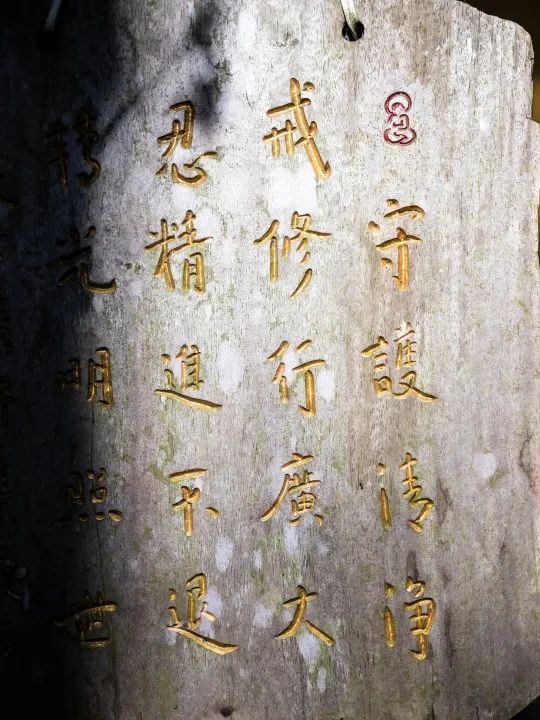 守護清淨
戒修行廣大
忍精進不退
轉光明照世